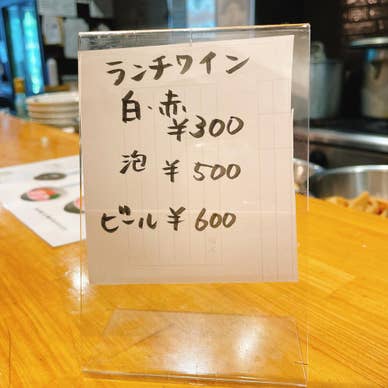 ランチワイン
白・赤
¥300
泡 ¥500
ビール ¥600